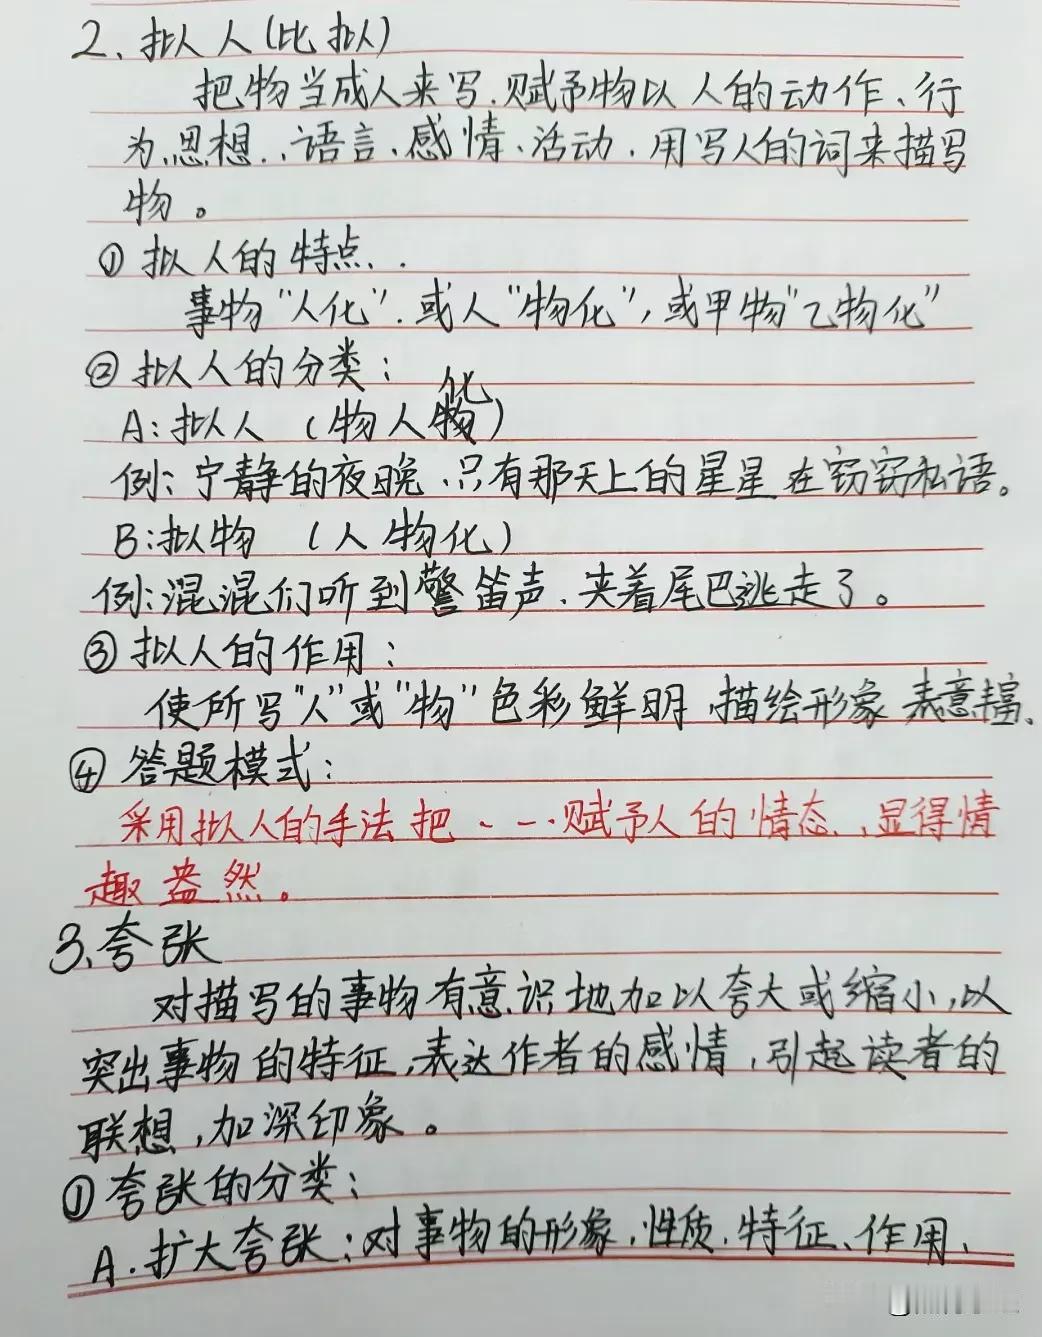 2、拟人(比拟)
把物当成人来写.赋予物以人的动作、行
为.思想.、语言、感情、活动.用写人的词来描写
物。
①拟人的特点..
事物"人化".或人"物化",或甲物"乙物化"
②拟人的分类:
A:拟人 (物人化)
例:宁静的夜晚.只有那天上的星星在窃窃私语。
B:拟物 (人物化)
例:混混们听到警笛声.夹着尾巴逃走了。
③拟人的作用:
使所写"人"或"物"色彩鲜明.描绘形象 表意丰富、
④答题模式:
采用拟人的手法把...赋予人的情态.,显得情
趣盎然。
3、夸张
对描写的事物有意识地加以夸大或缩小,以
突出事物的特征,表达作者的感情,引起读者的
联想,加深印象。
①夸张的分类:
A.扩大夸张:对事物的形象.性质.特征、作用、